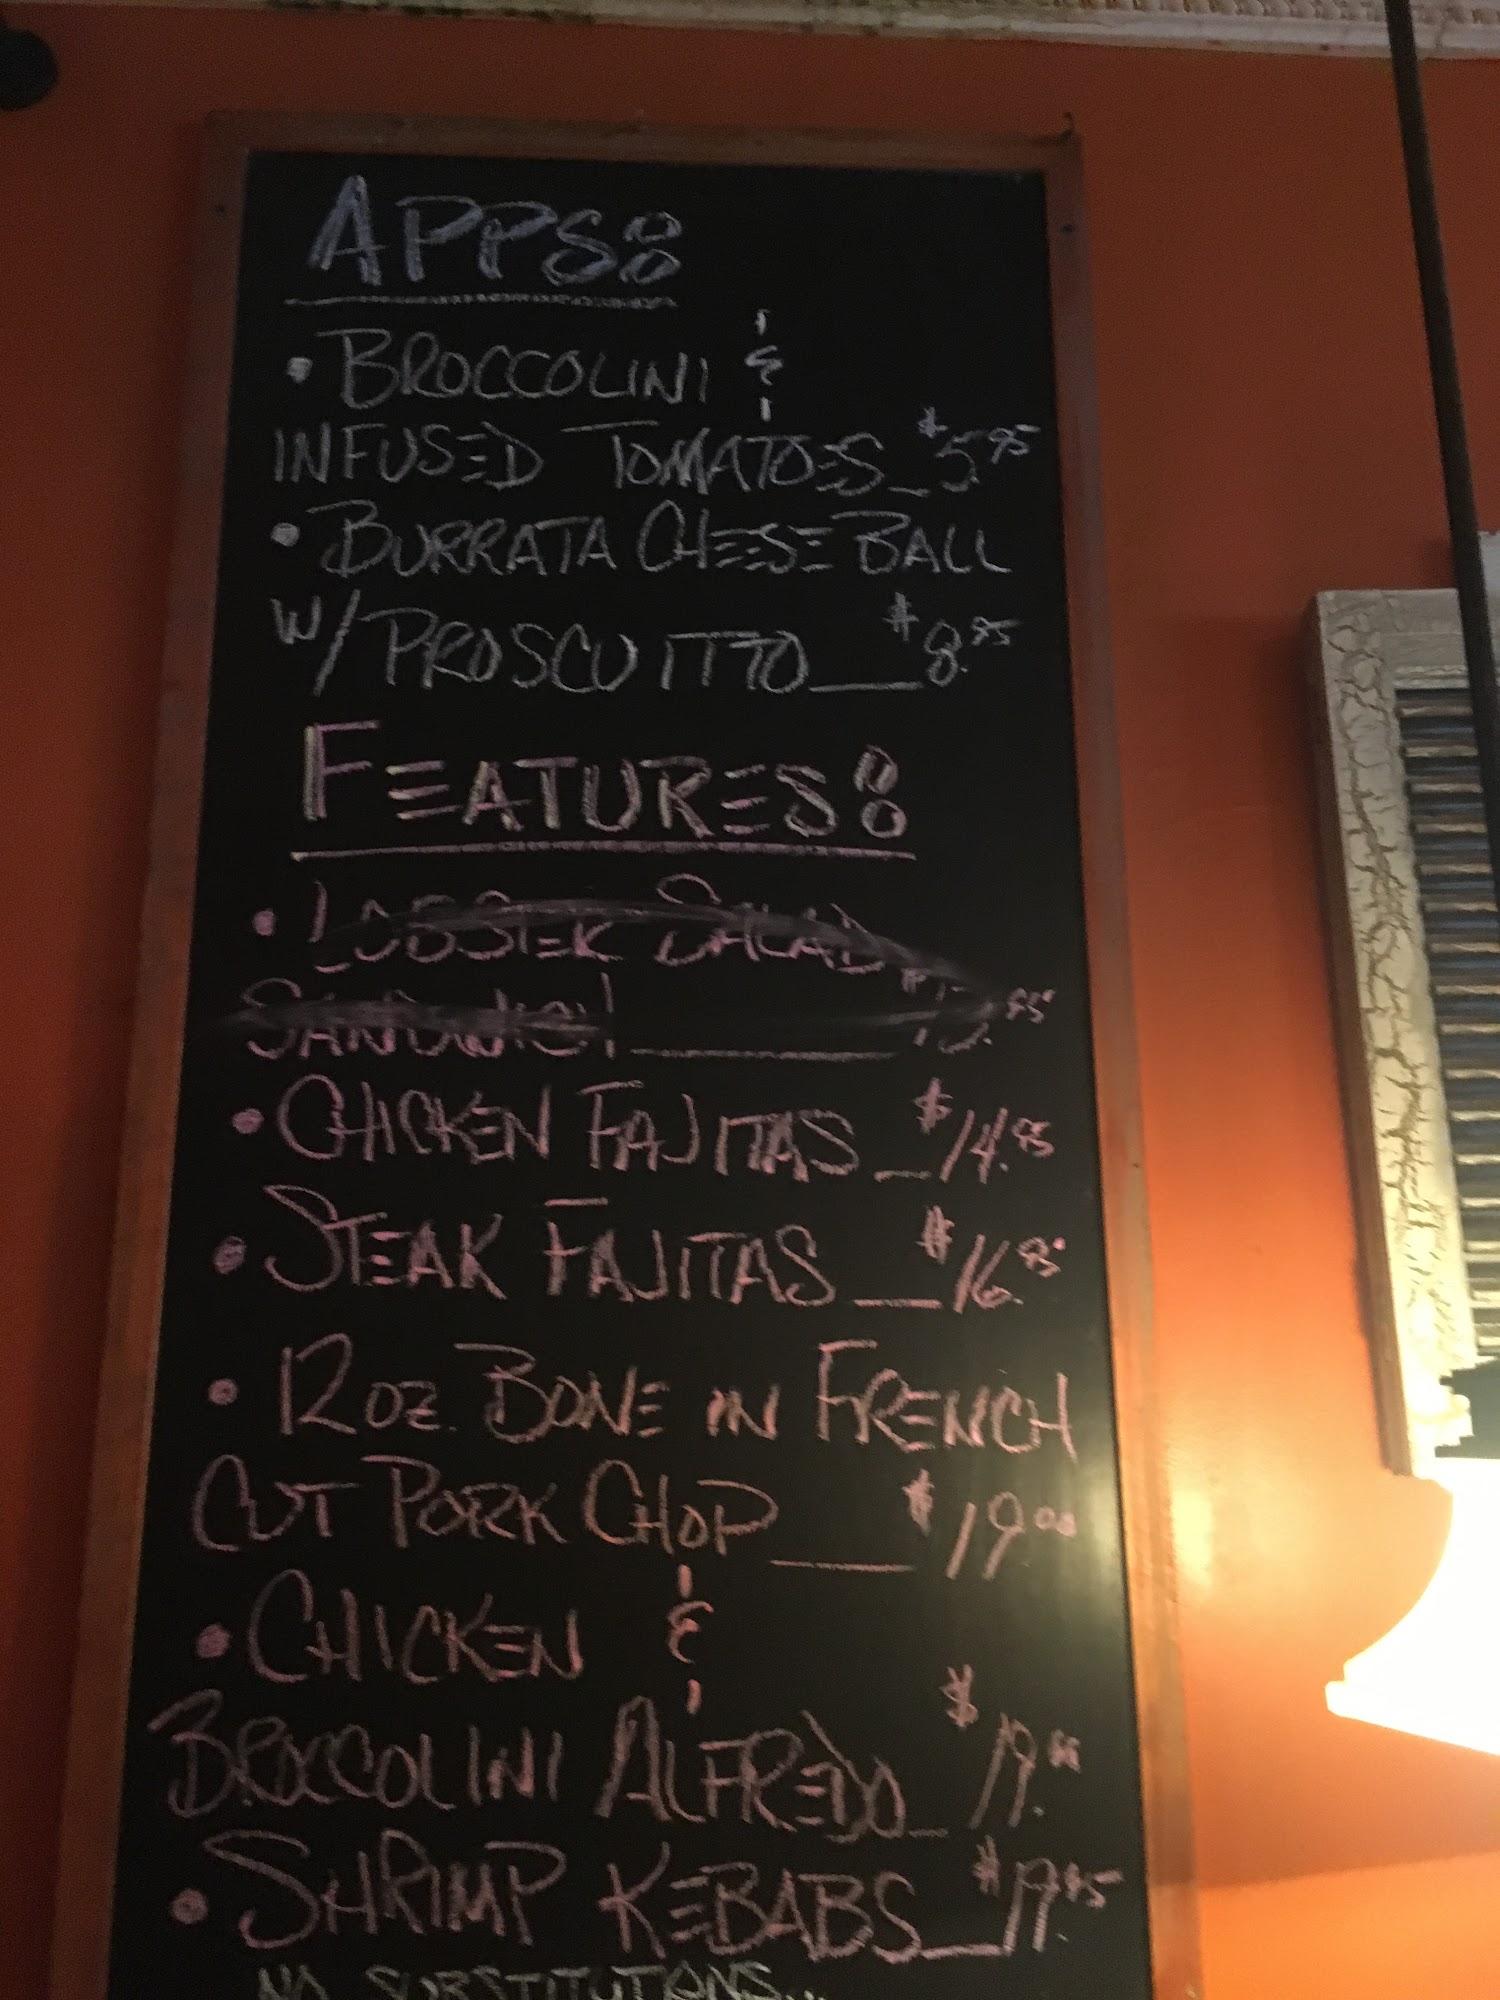 APPS:
• BROCCOLINI &
INFUSED TOMATOES_$5.95
• BURRATA CHEESE BALL
W/PROSCUITTO__$8.95
FEATURES:
• LOBSTER SALAD
SANDWICH
• CHICKEN FAJITAS_$14.95
• STEAK FAJITAS_$16.95
• 12 OZ. BONE IN FRENCH
CUT PORK CHOP__$19.00
• CHICKEN &
BROCCOLINI ALFREDO_$19.00
• SHRIMP KEBABS_$19.95
NO SUBSTITUTIONS...